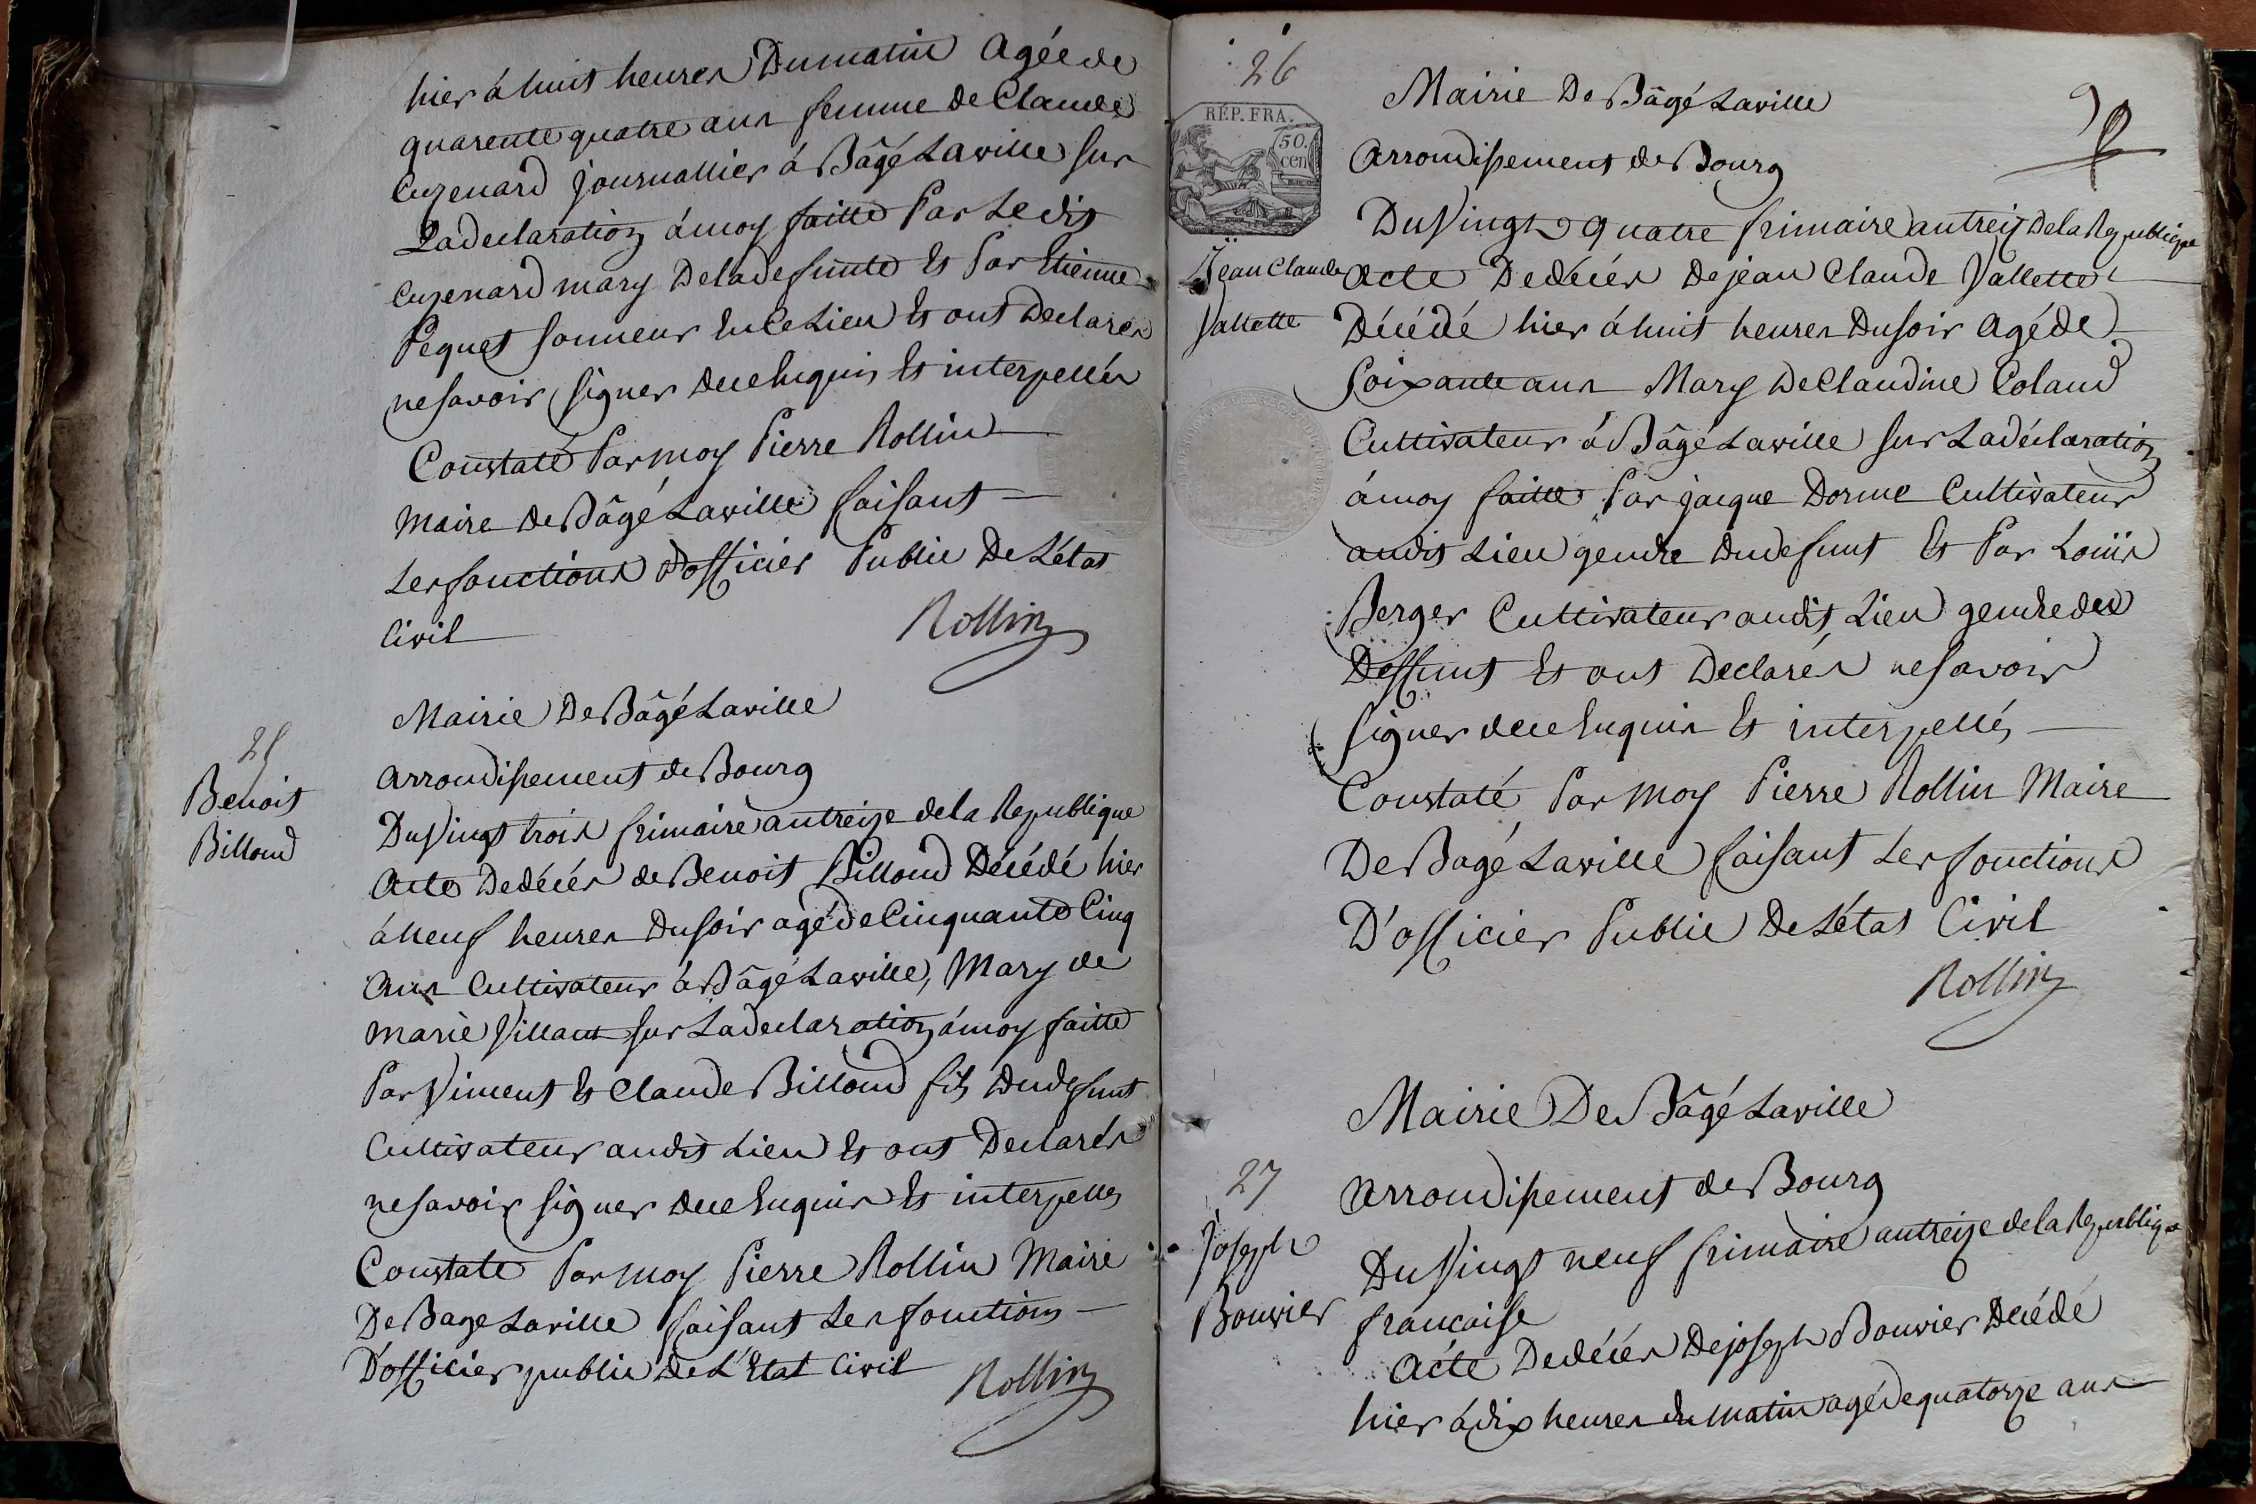 hier á huit heures Du matin Agée de
quarente quatre ans femme de Claude
Cuzenard journallier á Bâgé Laville sur
La declaration á moy faitte Par Le dit
Cuzenard mary De la defunte Et Par Etienne
Pequet sonneur En Ce Lieu Et ont Declarés
ne savoir signer de ce Enquis Et interpellés
Constaté Par moy Pierre Rollin
Maire De Bâgé Laville faisant
Les fonctions D'officier Public De L'état
Civil
Rollin
Mairie De Bâgé Laville
25
Benoit
Billoud
Arrondissement de Bourg
Du Vingt trois frimaire an treize de la Republique
Acte De décés de Benoit Billoud Décédé hier
á neuf heures Du soir agé de Cinquante Cinq
Ans Cultivateur á Bâgé Laville, Mary de
Marie Villant sur La declaration á moy faitte
Par Vincent Et Claude Billoud fils Du defunt
Cultivateur au dit Lieu Et ont Declarés
ne savoir signer de ce Enquis Et interpelles
Constate Par moy Pierre Rollin Maire
De Bage Laville faisant Les fonctions
D'officier public de L'Etat Civil
Rollin
26
9
Mairie De Bâgé Laville
RÉP. FRA.
50.
cen
Arrondissement de Bourg
Du Vingt Quatre frimaire an treiz De la Republique
Jean Claude
Vallette
Acte De décés De jean Claude Vallette
Décédé hier á huit heures Du soir Agé de
Soixante ans Mary De Claudine Coland
Cultivateur á Bâgé Laville sur La déclaration
á moy faitte Par jacque Dorme Cultivateur
au dit Lieu gendre Du defunt Et Par Louis
Berger Cultivateur au dit Lieu gendre du
Deffunt Et ont Declarés ne savoir
signer de ce Enquis Et interpellés
Constaté Par Moy Pierre Rollin Maire
De Bagé Laville faisant Les fonctions
D'officier Public De L'état Civil
Rollin
Mairie De Bâgé Laville
27
Joseph
Bouvier
Arrondissement de Bourg
Du Vingt neuf frimaire an treize de la Republique
française
Acte De décés De joseph Bouvier Décédé
hier á dix heures du matin agé de quatorze ans